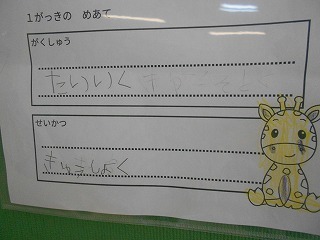 1がっきの めあて
がくしゅう
たいいく
せいかつ
きゅうしょく